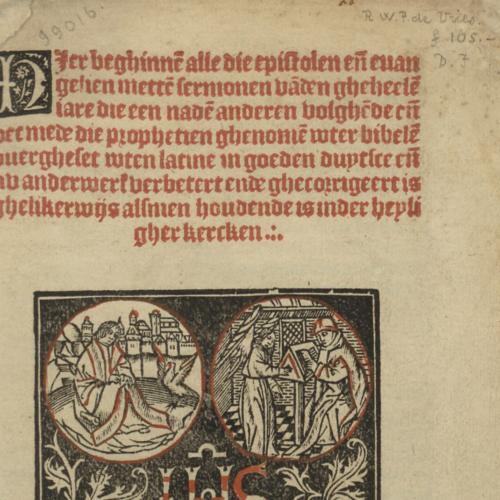 99016.
R. W. P. de Vries.
f 105.-
D. 7
Hier beghinnē alle die epistolen eñ euan
gelien mettē sermonen vāden gheheelē
iare die een nadē anderen volghēde eñ
oec mede die prophetien ghenomē wter bibelē
ouergheset wten latine in goeden duytsce eñ
nv anderwerf verbetert ende ghecorrigeert is
ghelikerwijs alsmen houdende is inder heyli
gher kercken .:.
IHS